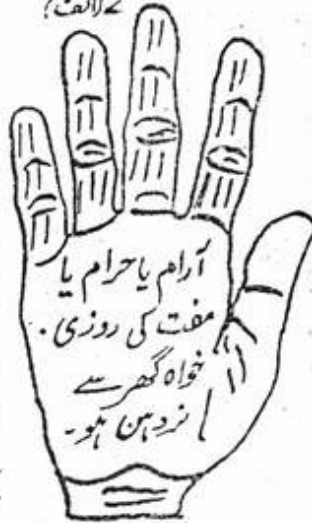 آرام یا حرام یا
مفت کی روزی۔
خواہ گھر سے
نردھن ہو۔